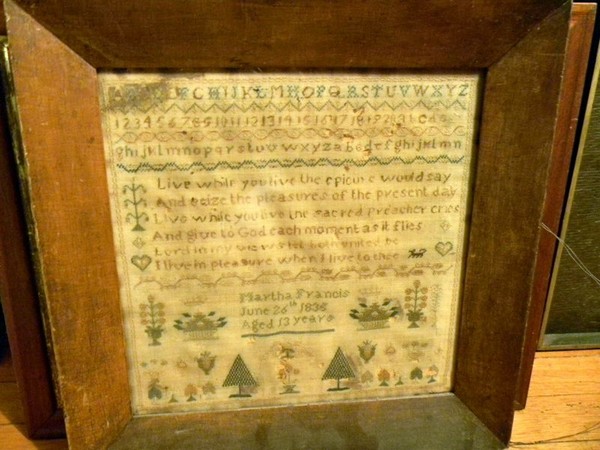 GHIJKLMNOPQRSTUVWXYZ
1 2 3 4 5 6 7 8 9 10 11 12 13 14 15 16 17 18 19 20
ghijklmnopqrstuvwxyzabcdefghijklmn
Live while you live the epicure would say
And seize the pleasures of the present day
Live while you live the sacred preacher cries
And give to God each moment as it flies
Lord in my views let both united be
I live in pleasure when I live to thee
Martha Francis
June 26th 1836
Aged 13 years